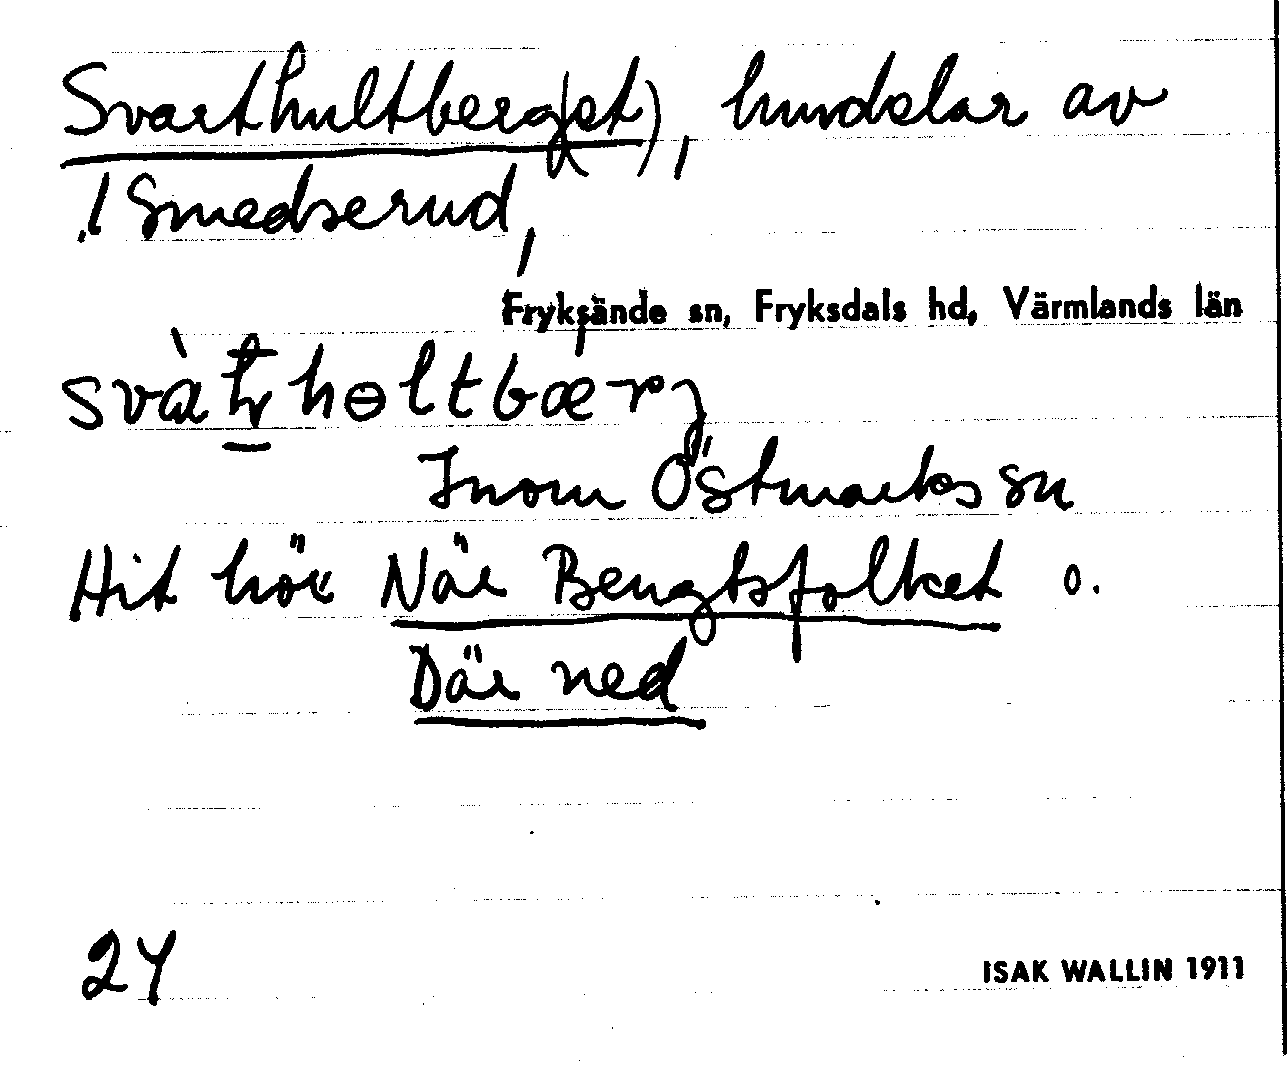 Svarthultberg(et), hemdelar av
./ Smedserud,
Fryksände sn, Fryksdals hd, Värmlands län
svàt̲hɵltbærj
Inom Östmarks sn
Hit hör När Bengtsfolket o.
Där ned
24
ISAK WALLIN 1911